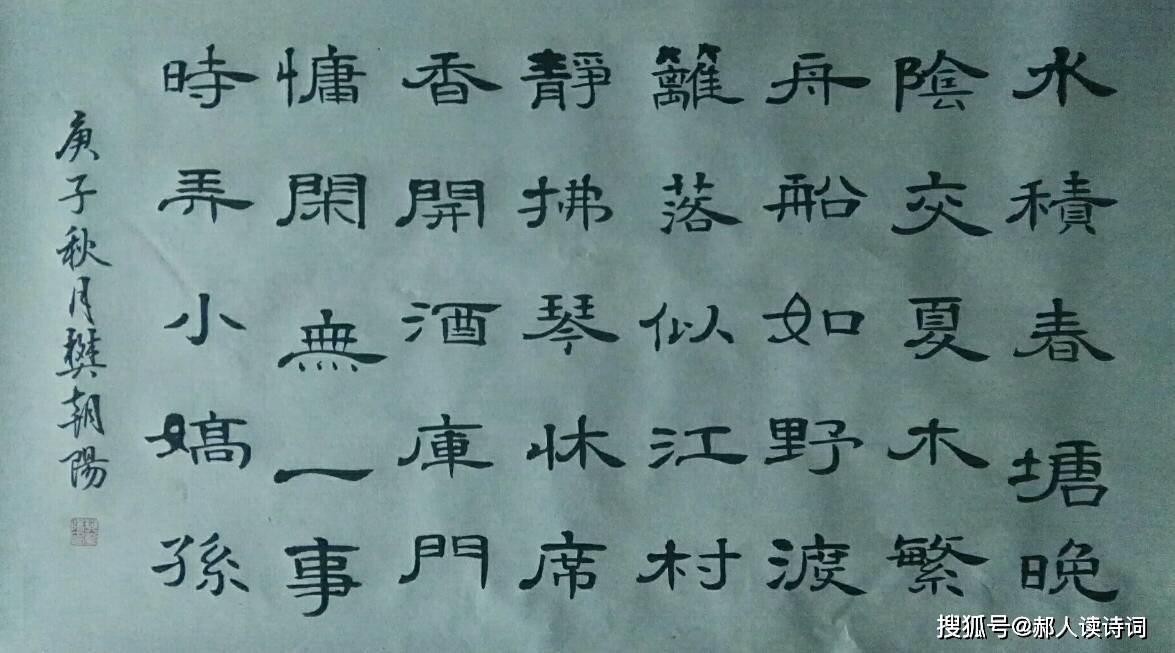 水積春塘晚
陰交夏木繁
舟船如野渡
籬落似江村
靜拂琴牀席
香開酒庫門
慵閑無一事
時弄小嬌孫
庚子秋月樊朝陽
搜狐号@郝人读诗词